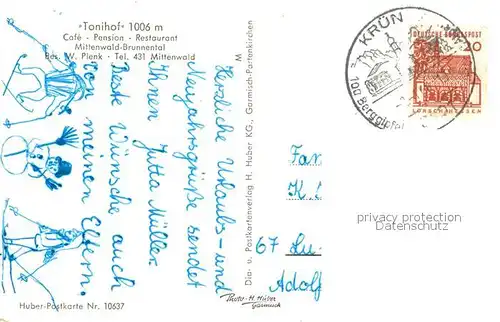 "Tonihof" 1006 m
Café - Pension - Restaurant
Mittenwald-Brunnental
Bes. W. Plenk · Tel. 431 Mittenwald
Herzliche Urlaubs- und
Neujahrsgrüße sendet
Ihnen Jutta Müller.
Beste Wünsche auch
von meinen Eltern.
Huber-Postkarte Nr. 10637
M
Dia- u. Postkartenverlag H. Huber KG., Garmisch-Partenkirchen
Photo-H. Huber
Garmisch
KRÜN
100 Berggipfel
DEUTSCHE BUNDESPOST
20
Fam
K.
67 Lu-
Adolf
privacy protection
Datenschutz